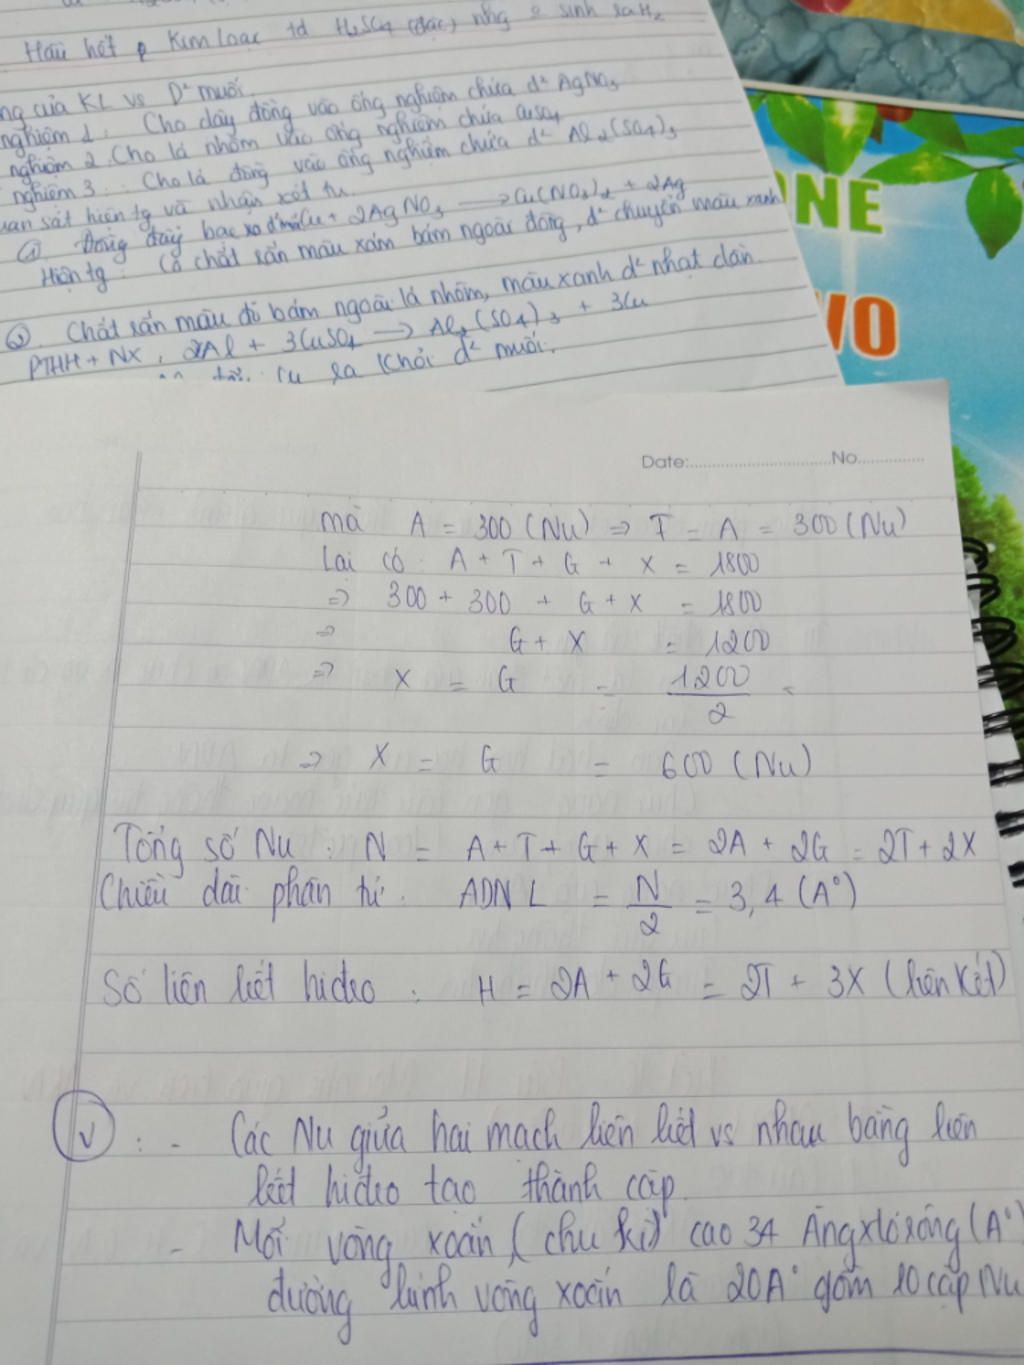 Hầu hết KimLoại td H₂SO₄ (đặc) nhg o sinh ra H₂
ng của KL vs D² muối.
nghiệm 1: Cho dây đồng vào ống nghiệm chứa d² AgNO₃
nghiệm 2. Cho lá nhôm vào ống nghiệm chứa CuSO₄
nghiệm 3: Cho lá đồng vào ống nghiệm chứa d² Al₂(SO₄)₃
uan sát hiện tg và nhận xét
① Đồng đẩy bạc Cu + 2AgNO₃ → Cu(NO₃)₂ + 2Ag
Hiện tg: Có chất rắn màu xám bám ngoài đồng, d² chuyển màu xanh
② Chất rắn màu đỏ bám ngoài lá nhôm, màu xanh d² nhạt dần.
PTHH + NX: 2Al + 3CuSO₄ → Al₂(SO₄)₃ + 3Cu
Cu ra khỏi d² muối.
NE
VO
Date:..............................No..............
mà A = 300 (Nu) => T = A = 300 (Nu)
Lại có: A + T + G + X = 1800
=> 300 + 300 + G + X = 1800
=> G + X = 1200
=> X = G = 1200/2
=> X = G = 600 (Nu)
Tổng số Nu: N = A + T + G + X = 2A + 2G = 2T + 2X
Chiều dài phân tử: ADN L = N/2 = 3,4 (A°)
Số liên kết hidro: H = 2A + 2G = 2T + 3X (liên kết)
V: - Các Nu giữa hai mạch liên kết vs nhau bằng liên
kết hidro tạo thành cặp.
- Mỗi vòng xoắn (chu kì) cao 34 Ăngxtơrông (A°)
đường kính vòng xoắn là 20A° gồm 10 cặp Nu